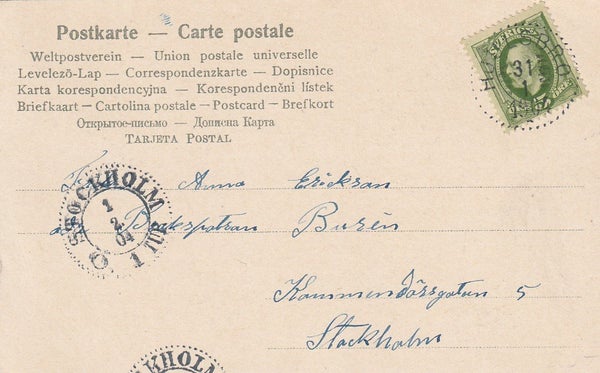 Postkarte — Carte postale
Weltpostverein — Union postale universelle
Levelező-Lap — Correspondenzkarte — Dopisnice
Karta korespondencyjna — Korespondenčni lístek
Briefkaart — Cartolina postale — Postcard — Brefkort
Открытое-письмо — Дописна Карта
TARJETA POSTAL
SVERIGE
31
1
STOCKHOLM
1
2
04
1 TUR
Fr Anna Erickson
Burén
Kommendörsgatan 5
Stockholm
KHOLM